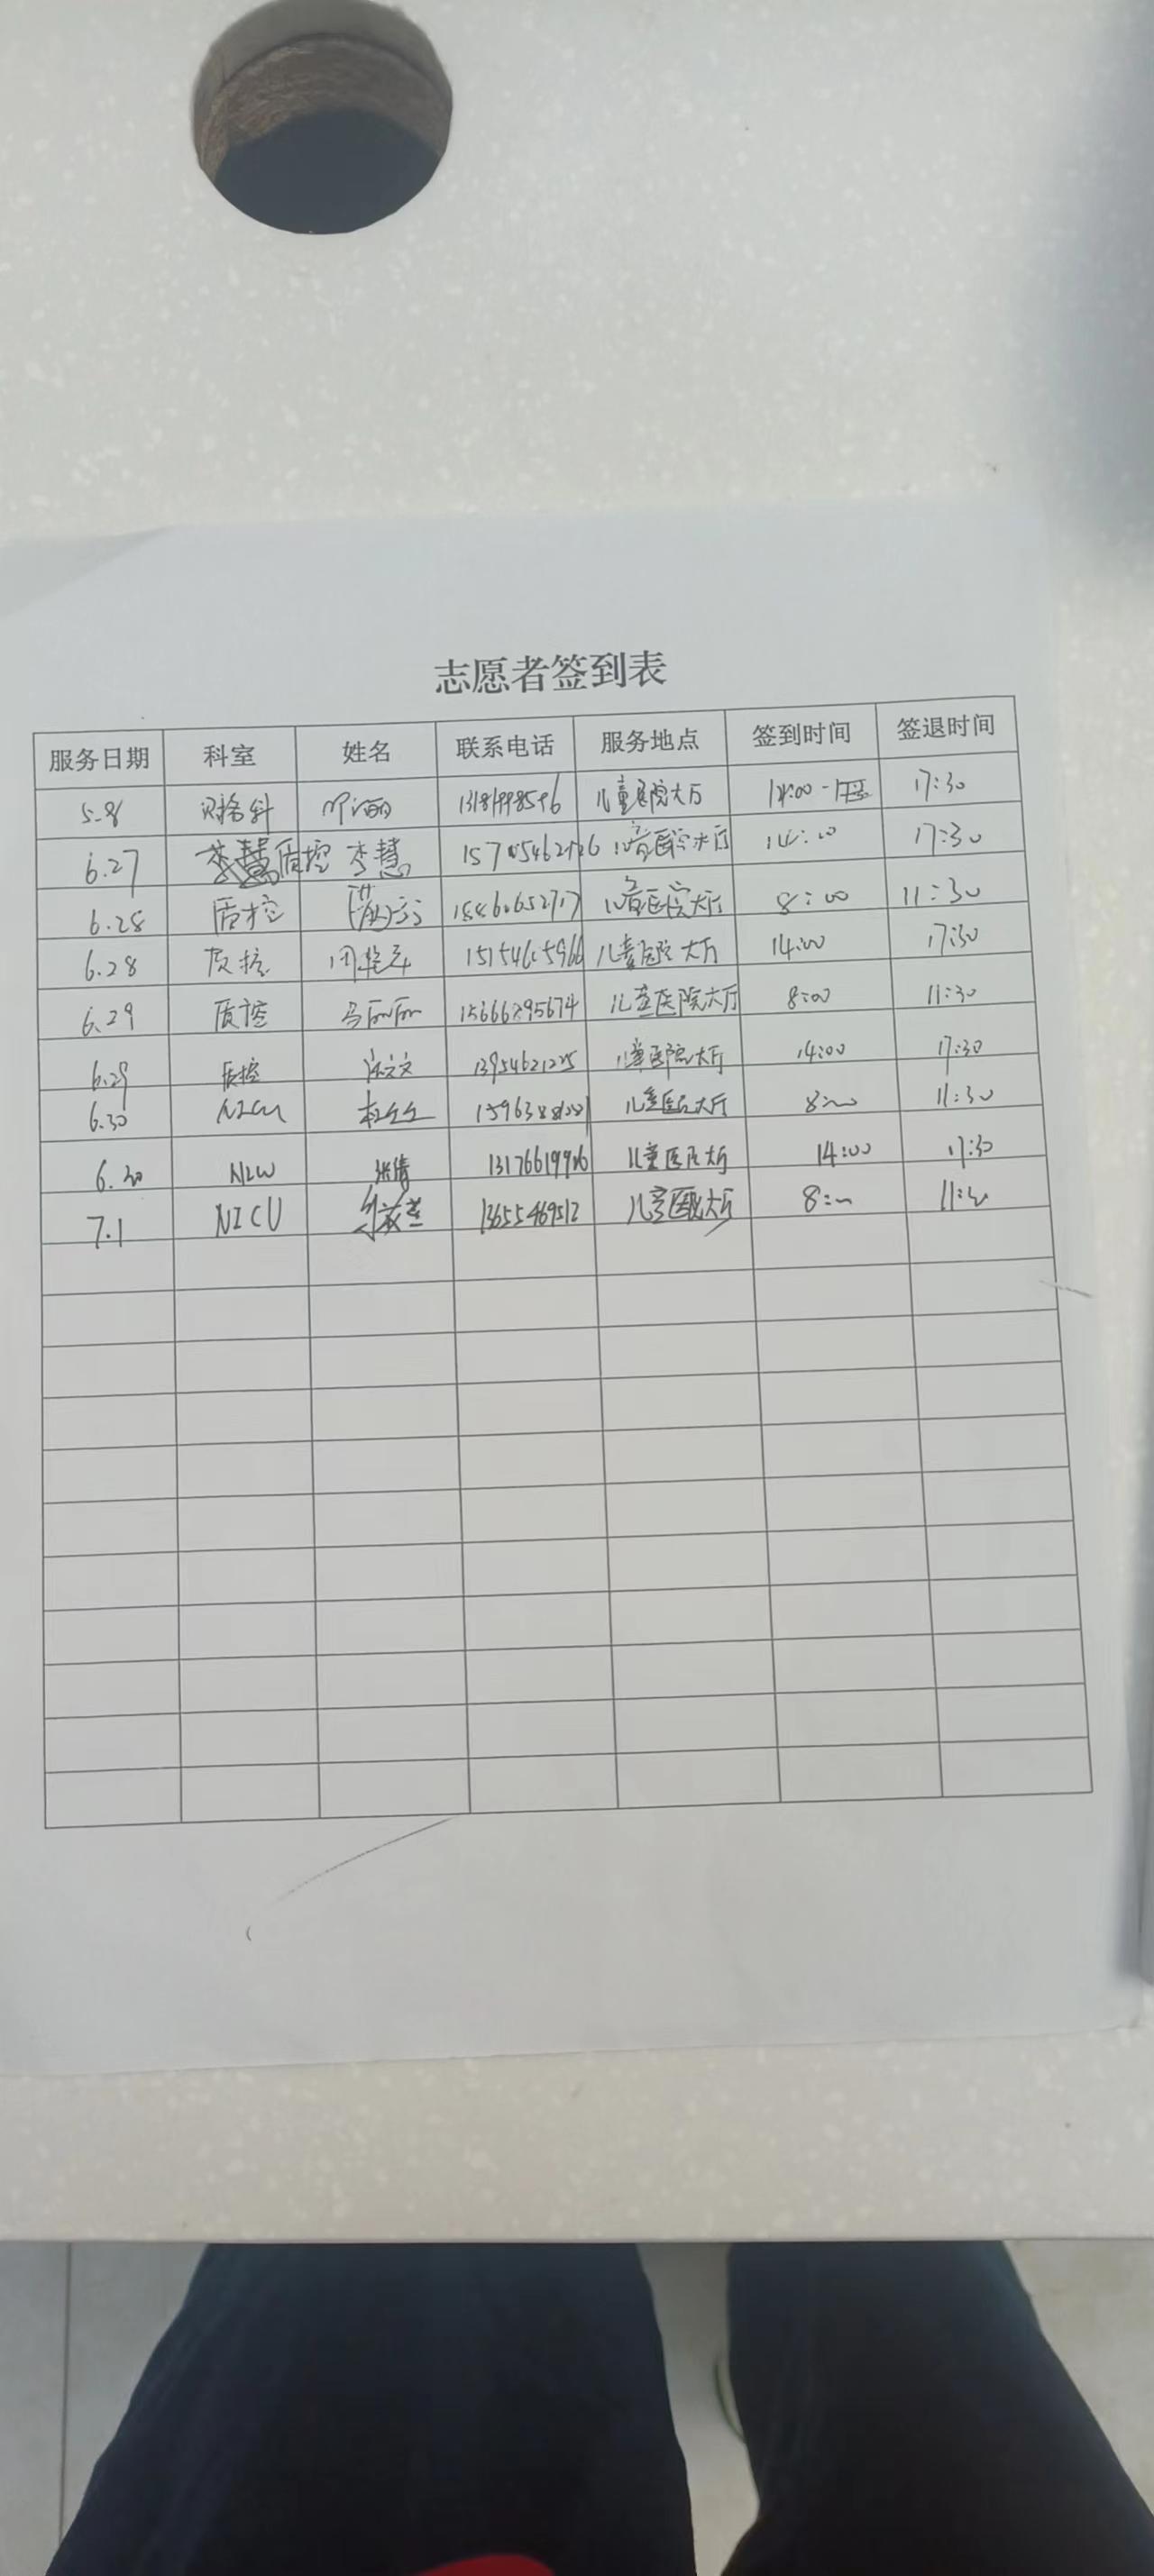 志愿者签到表
服务日期 科室 姓名 联系电话 服务地点 签到时间 签退时间
5.8 财务科 儿童医院大厅 14:00 17:30
6.27 质控 李慧 儿童医院大厅 14:00 17:30
6.28 质控 儿童医院大厅 8:00 11:30
6.28 质控 儿童医院大厅 14:00 17:30
6.29 质控 马丽丽 15666295674 儿童医院大厅 8:00 11:30
6.29 质控 13954621225 儿童医院大厅 14:00 17:30
6.30 NICU 儿童医院大厅 8:00 11:30
6.30 NICU 张倩 儿童医院大厅 14:00 17:30
7.1 NICU 13655469512 儿童医院大厅 8:00 11:30